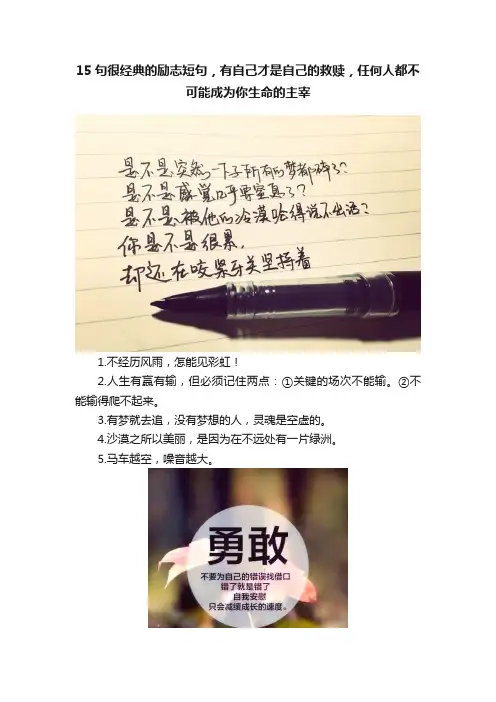 15句很经典的励志短句，有自己才是自己的救赎，任何人都不
可能成为你生命的主宰
是不是突然一下子所有的梦都碎了？
是不是感觉几乎要窒息了？
是不是被他的冷漠呛得说不出话？
你是不是很累，
却还在咬紧牙关坚持着
1.不经历风雨，怎能见彩虹！
2.人生有赢有输，但必须记住两点：①关键的场次不能输。②不
能输得爬不起来。
3.有梦就去追，没有梦想的人，灵魂是空虚的。
4.沙漠之所以美丽，是因为在不远处有一片绿洲。
5.马车越空，噪音越大。
勇敢
不要为自己的错误找借口
错了就是错了
自我安慰
只会减缓成长的速度。